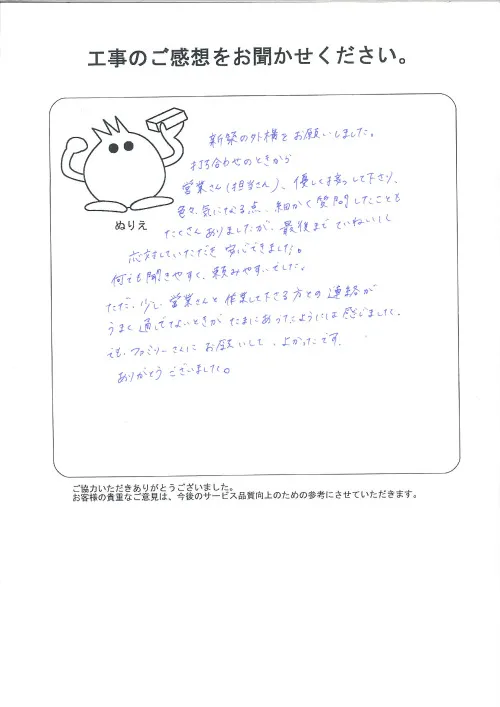 工事のご感想をお聞かせください。
新築の外構をお願いしました。
打ち合わせのときから
営業さん(担当さん)、優しく接して下さり、
色々、気になる点、細かく質問したことも
たくさんありましたが、最後まで ていねいに
応対していただき 安心できました。
何でも聞きやすく、頼みやすいでした。
ただ、少し、営業さんと作業して下さる方との連絡が
うまく通じてないときが たまにあったようには感じました。
でも、ファミリーさんに お願いして、よかったです。
ありがとうございました。
ぬりえ
ご協力いただきありがとうございました。
お客様の貴重なご意見は、今後のサービス品質向上のための参考にさせていただきます。